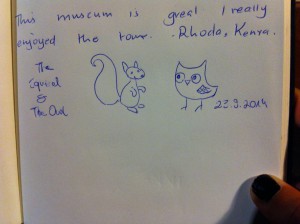 This museum is great I really
enjoyed the tour. Rhoda, Kenya.
The
Squirel
&
The Owl
23.3.2014